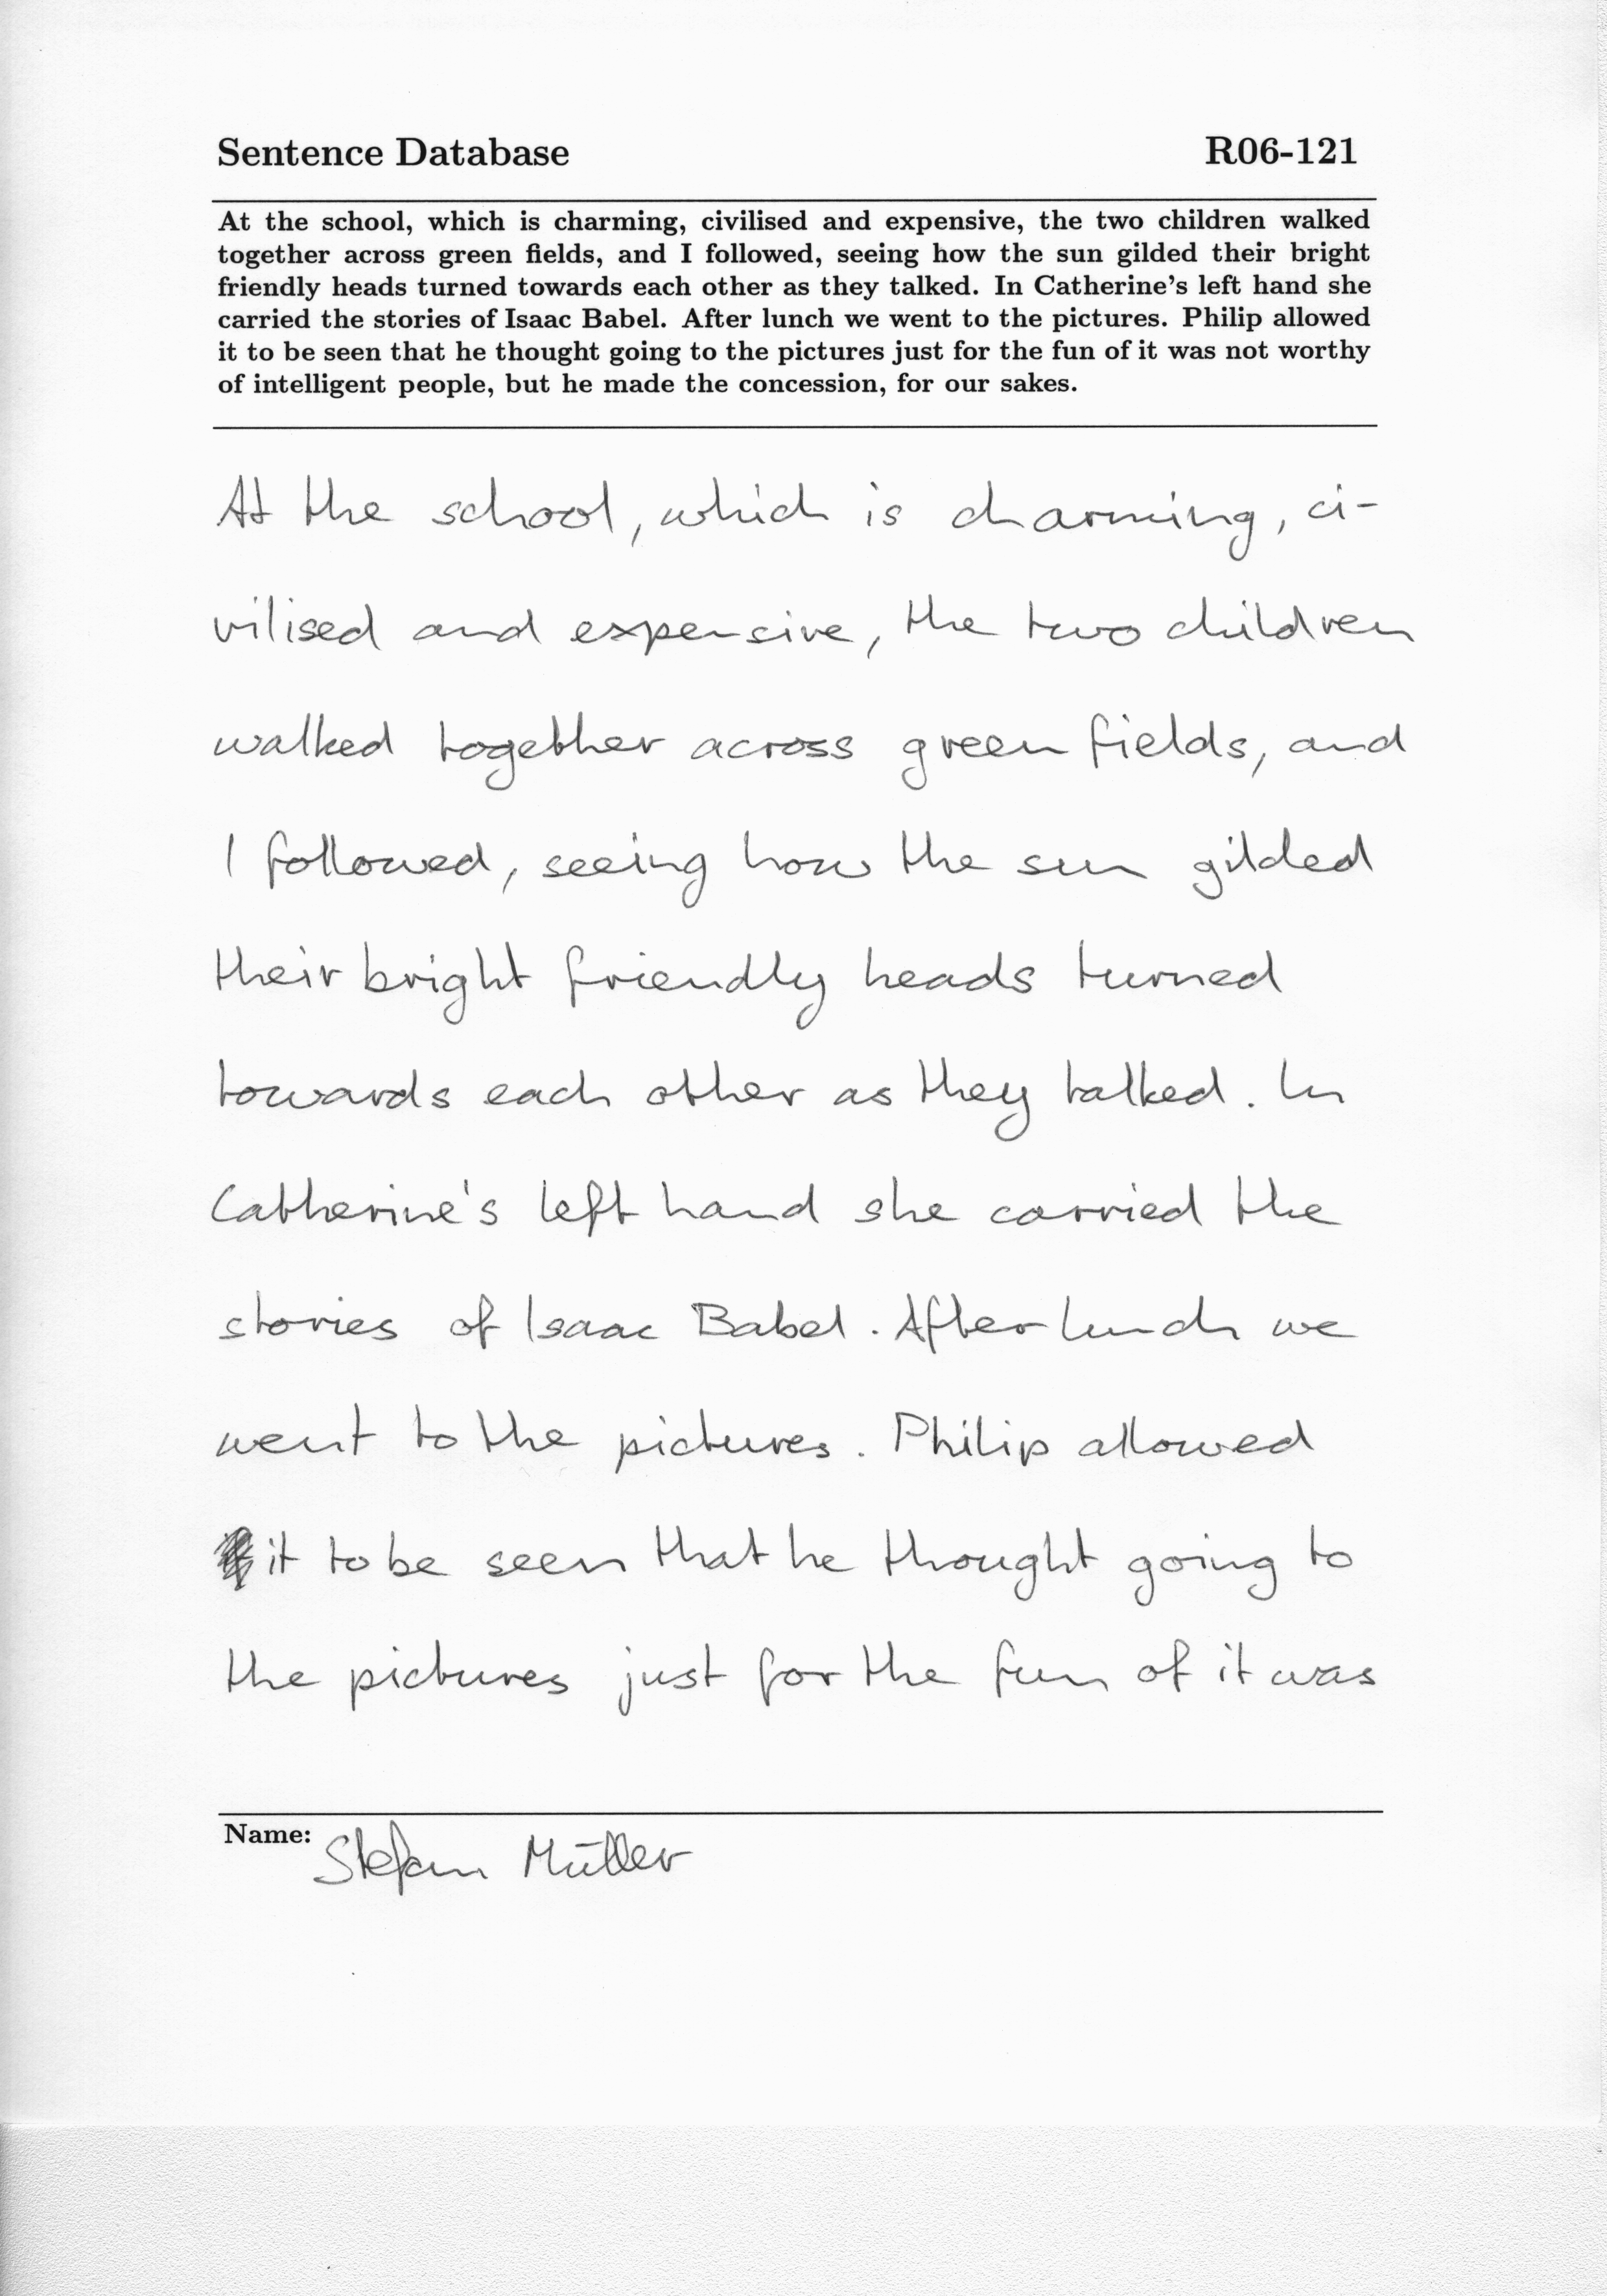 Sentence Database R06-121
At the school, which is charming, civilised and expensive, the two children walked
together across green fields, and I followed, seeing how the sun gilded their bright
friendly heads turned towards each other as they talked. In Catherine's left hand she
carried the stories of Isaac Babel. After lunch we went to the pictures. Philip allowed
it to be seen that he thought going to the pictures just for the fun of it was not worthy
of intelligent people, but he made the concession, for our sakes.
At the school, which is charming, ci-
vilised and expensive, the two children
walked together across green fields, and
I followed, seeing how the sun gilded
their bright friendly heads turned
towards each other as they talked. In
Catherine's left hand she carried the
stories of Isaac Babel. After lunch we
went to the pictures. Philip allowed
it to be seen that he thought going to
the pictures just for the fun of it was
Name: Stefan Müller